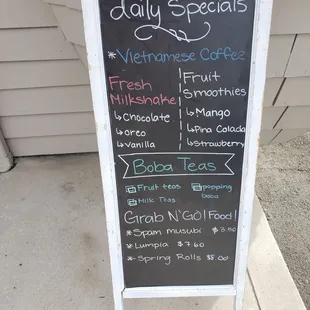 daily Specials
* Vietnamese Coffee
Fresh
Milkshake
↳ Chocolate
↳ oreo
↳ vanilla
Fruit
Smoothies
↳ Mango
↳ Pina Colada
↳ Strawberry
Boba Teas
Fruit teas
Milk Teas
popping
boba
Grab N' GO! Food!
* Spam musubi $3.50
* Lumpia $7.60
* Spring Rolls $8.00